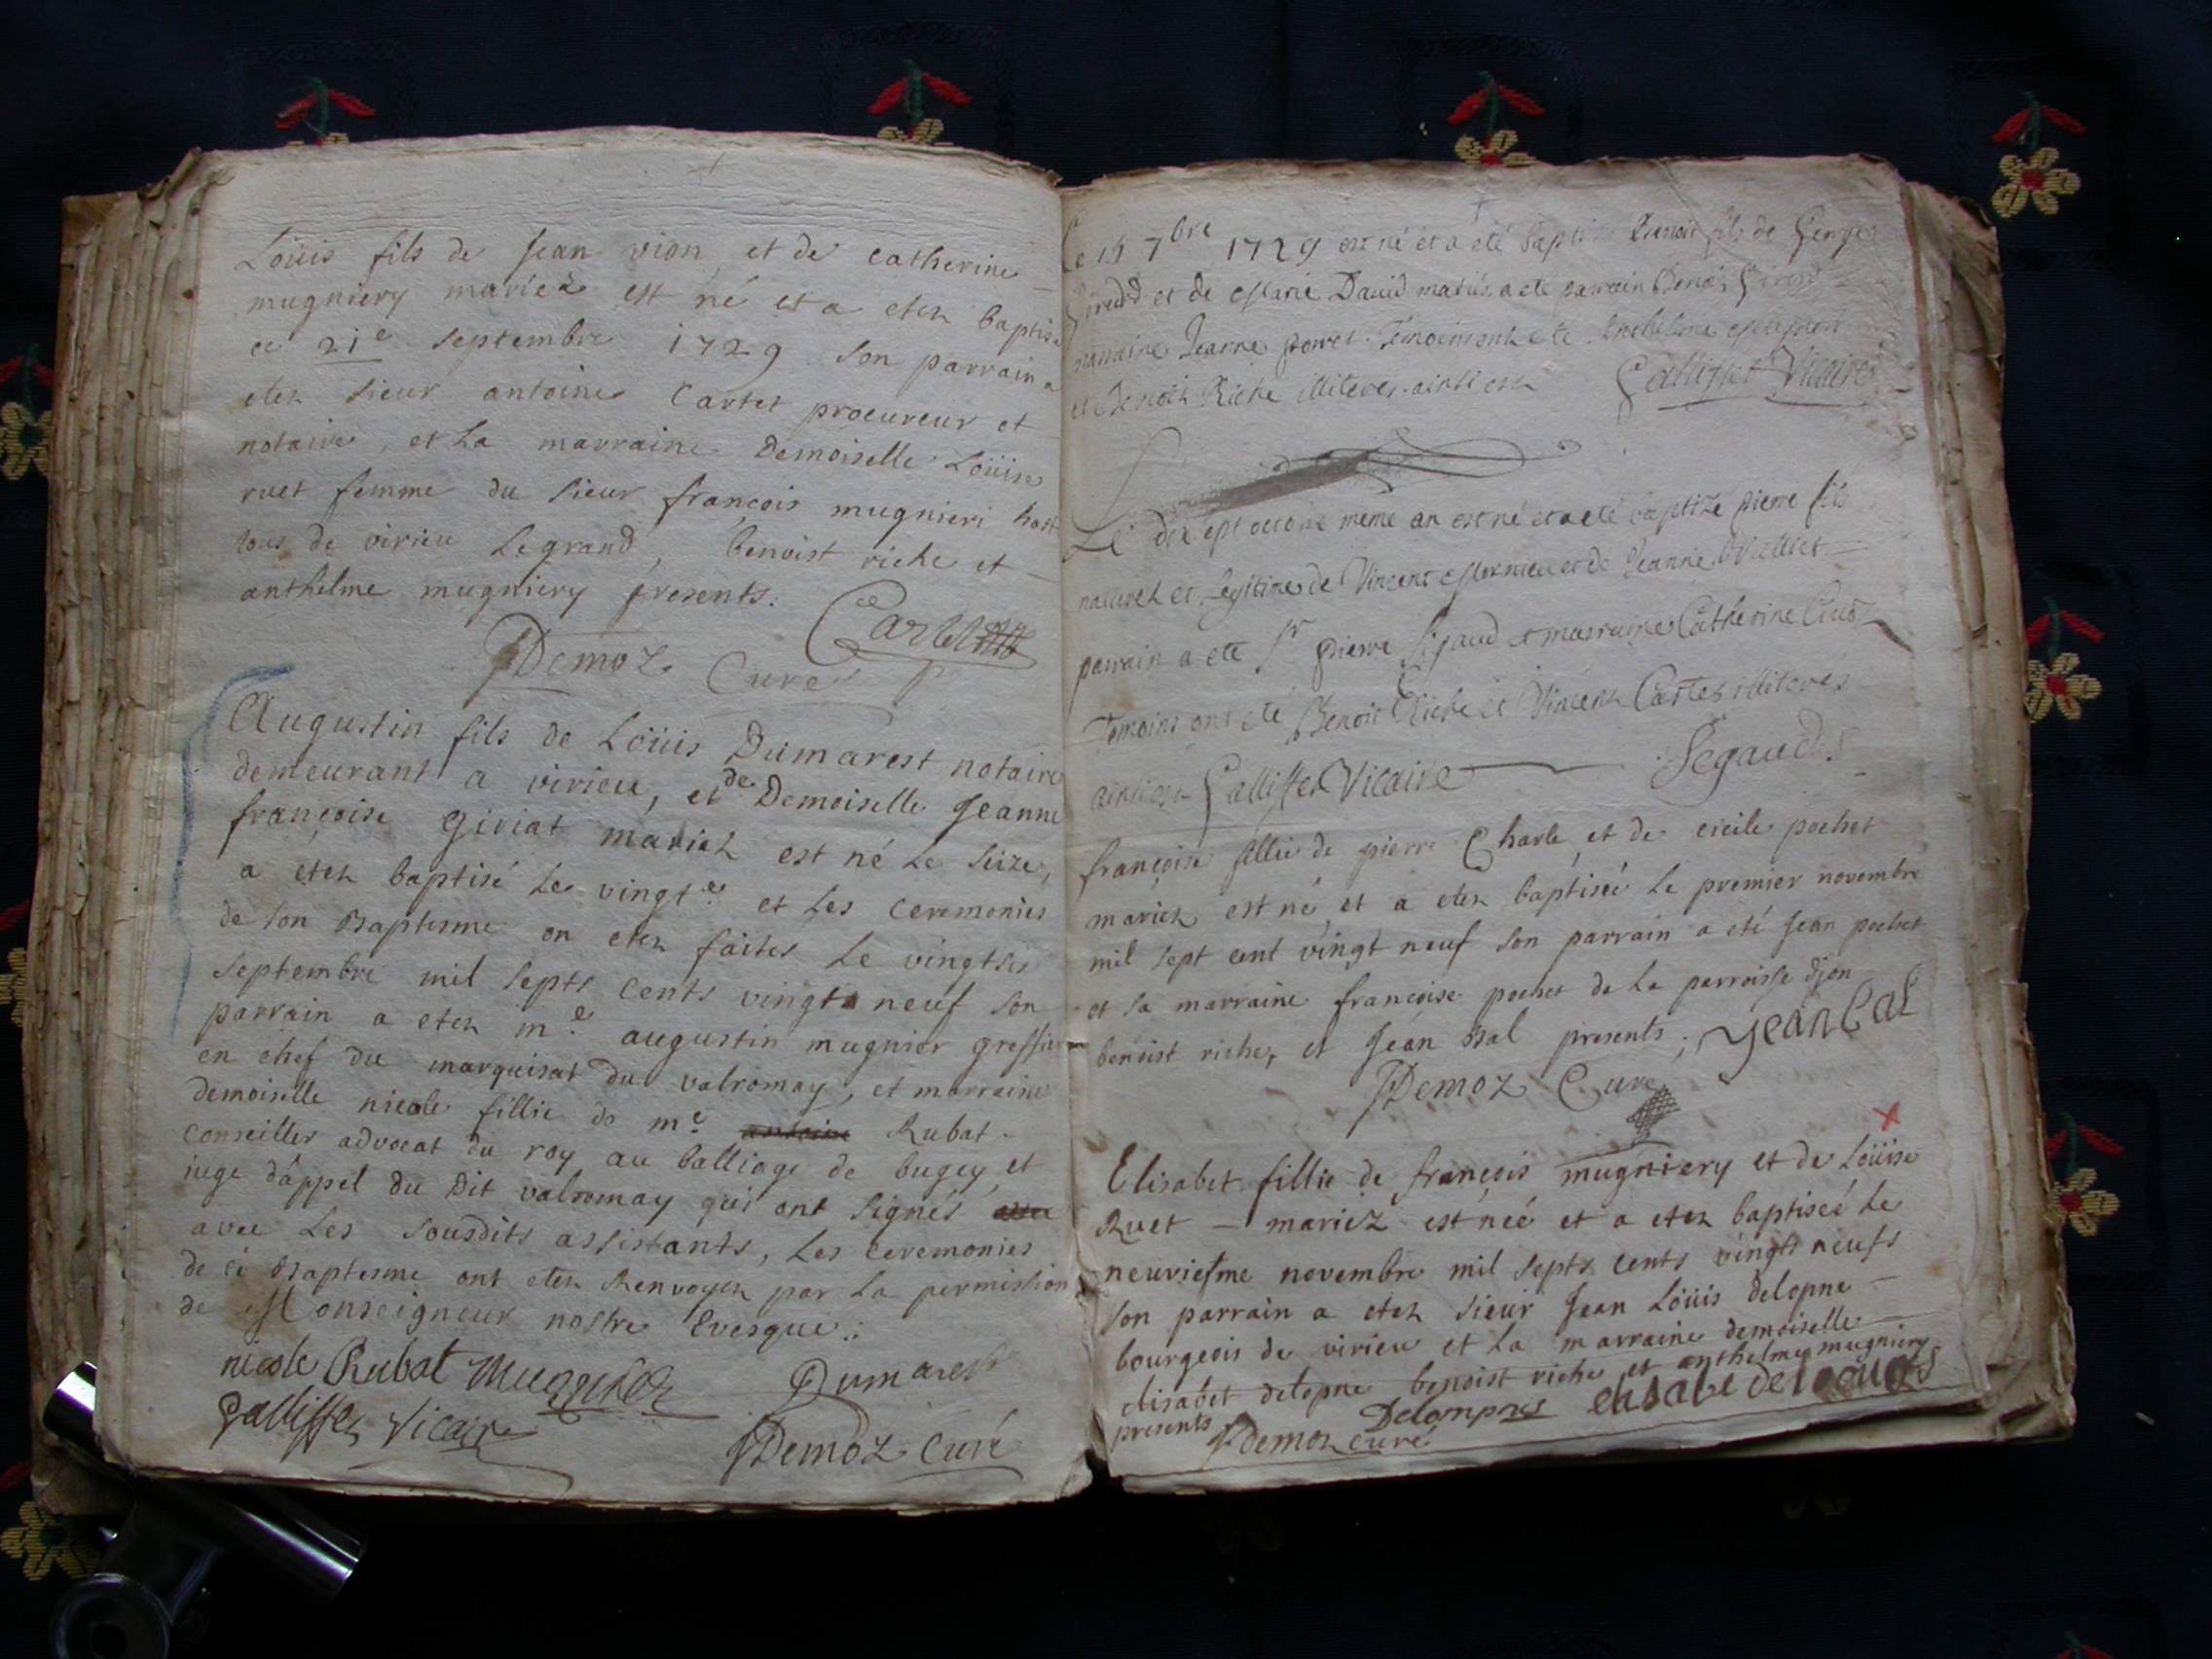 Loüis fils de Jean vion et de catherine
mugniery mariez est né et a etez baptisé
ce 21e septembre 1729 son parrain a
etez sieur antoine Cartet procureur et
notaire, et La marraine Demoiselle Loüise
ruet femme du sieur françois mugnieri
tous de virieu Legrand, benoist riche et
anthelme mugniery presents.
Cartet
Demoz Curé
Augustin fils de Loüis Dumarest notaire
demeurant a virieu, et de Demoiselle Jeanne
françoise Giriat mariez est né Le seize,
a etez baptisé Le vingt.e et Les ceremonies
de son Baptesme on etez faites Le vingtsix
septembre mil septs cents vingts neuf son
parrain a etez m.e augustin mugnier greffier
en chef du marquisat du valromay, et marraine
demoiselle nicole fillie de m.e antoine Rubat
Conseiller advocat du roy au balliage de bugey, et
iuge d'appel du Dit valromay qui ont signés
avec Les sousdits assistants, Les ceremonies
de ce Baptesme ont etez Renvoyez par La permission
de Monseigneur nostre Evesque.
nicole Rubat Mugnier Dumarest
Galliffet Vicaire Demoz curé
Le 7bre 1729 est né et a eté baptisé Benoit fils de
et de Marie David mariés a eté parrain Benoit
marraine Jeanne temoins ont eté Anthelme
et Benoit Riche illiterés ainsi est Galliffet Vicaire
Le dix sept octobre meme an est né et a eté baptizé pierre fils
naturel et legitime de Vincent et de Jeanne
parrain a eté Sr pierre Segaud et marraine Catherine
Temoins ont eté Benoit Riche et Vincent Cartet illiterés
ainsi est Galliffet Vicaire Segaud
françoise fillie de pierre Charle et de cicile pochet
mariez est né et a etez baptiseé Le premier novembre
mil sept cent vingt neuf son parrain a eté Jean pochet
et sa marraine françoise pochet de La parroisse djon
benoist riche, et Jean Bal presents; Jean Bal
Demoz Curé
Elisabet fillie de françois mugniery et de Loüise
Ruet mariez est neé et a etez baptiseé Le
neuviesme novembre mil septs cents vingts neufs
son parrain a etez sieur Jean Loüis delopne
bourgeois de virieu et La marraine demoiselle
elisabet delopne benoist riche et anthelme mugniery
presents
Demoz curé